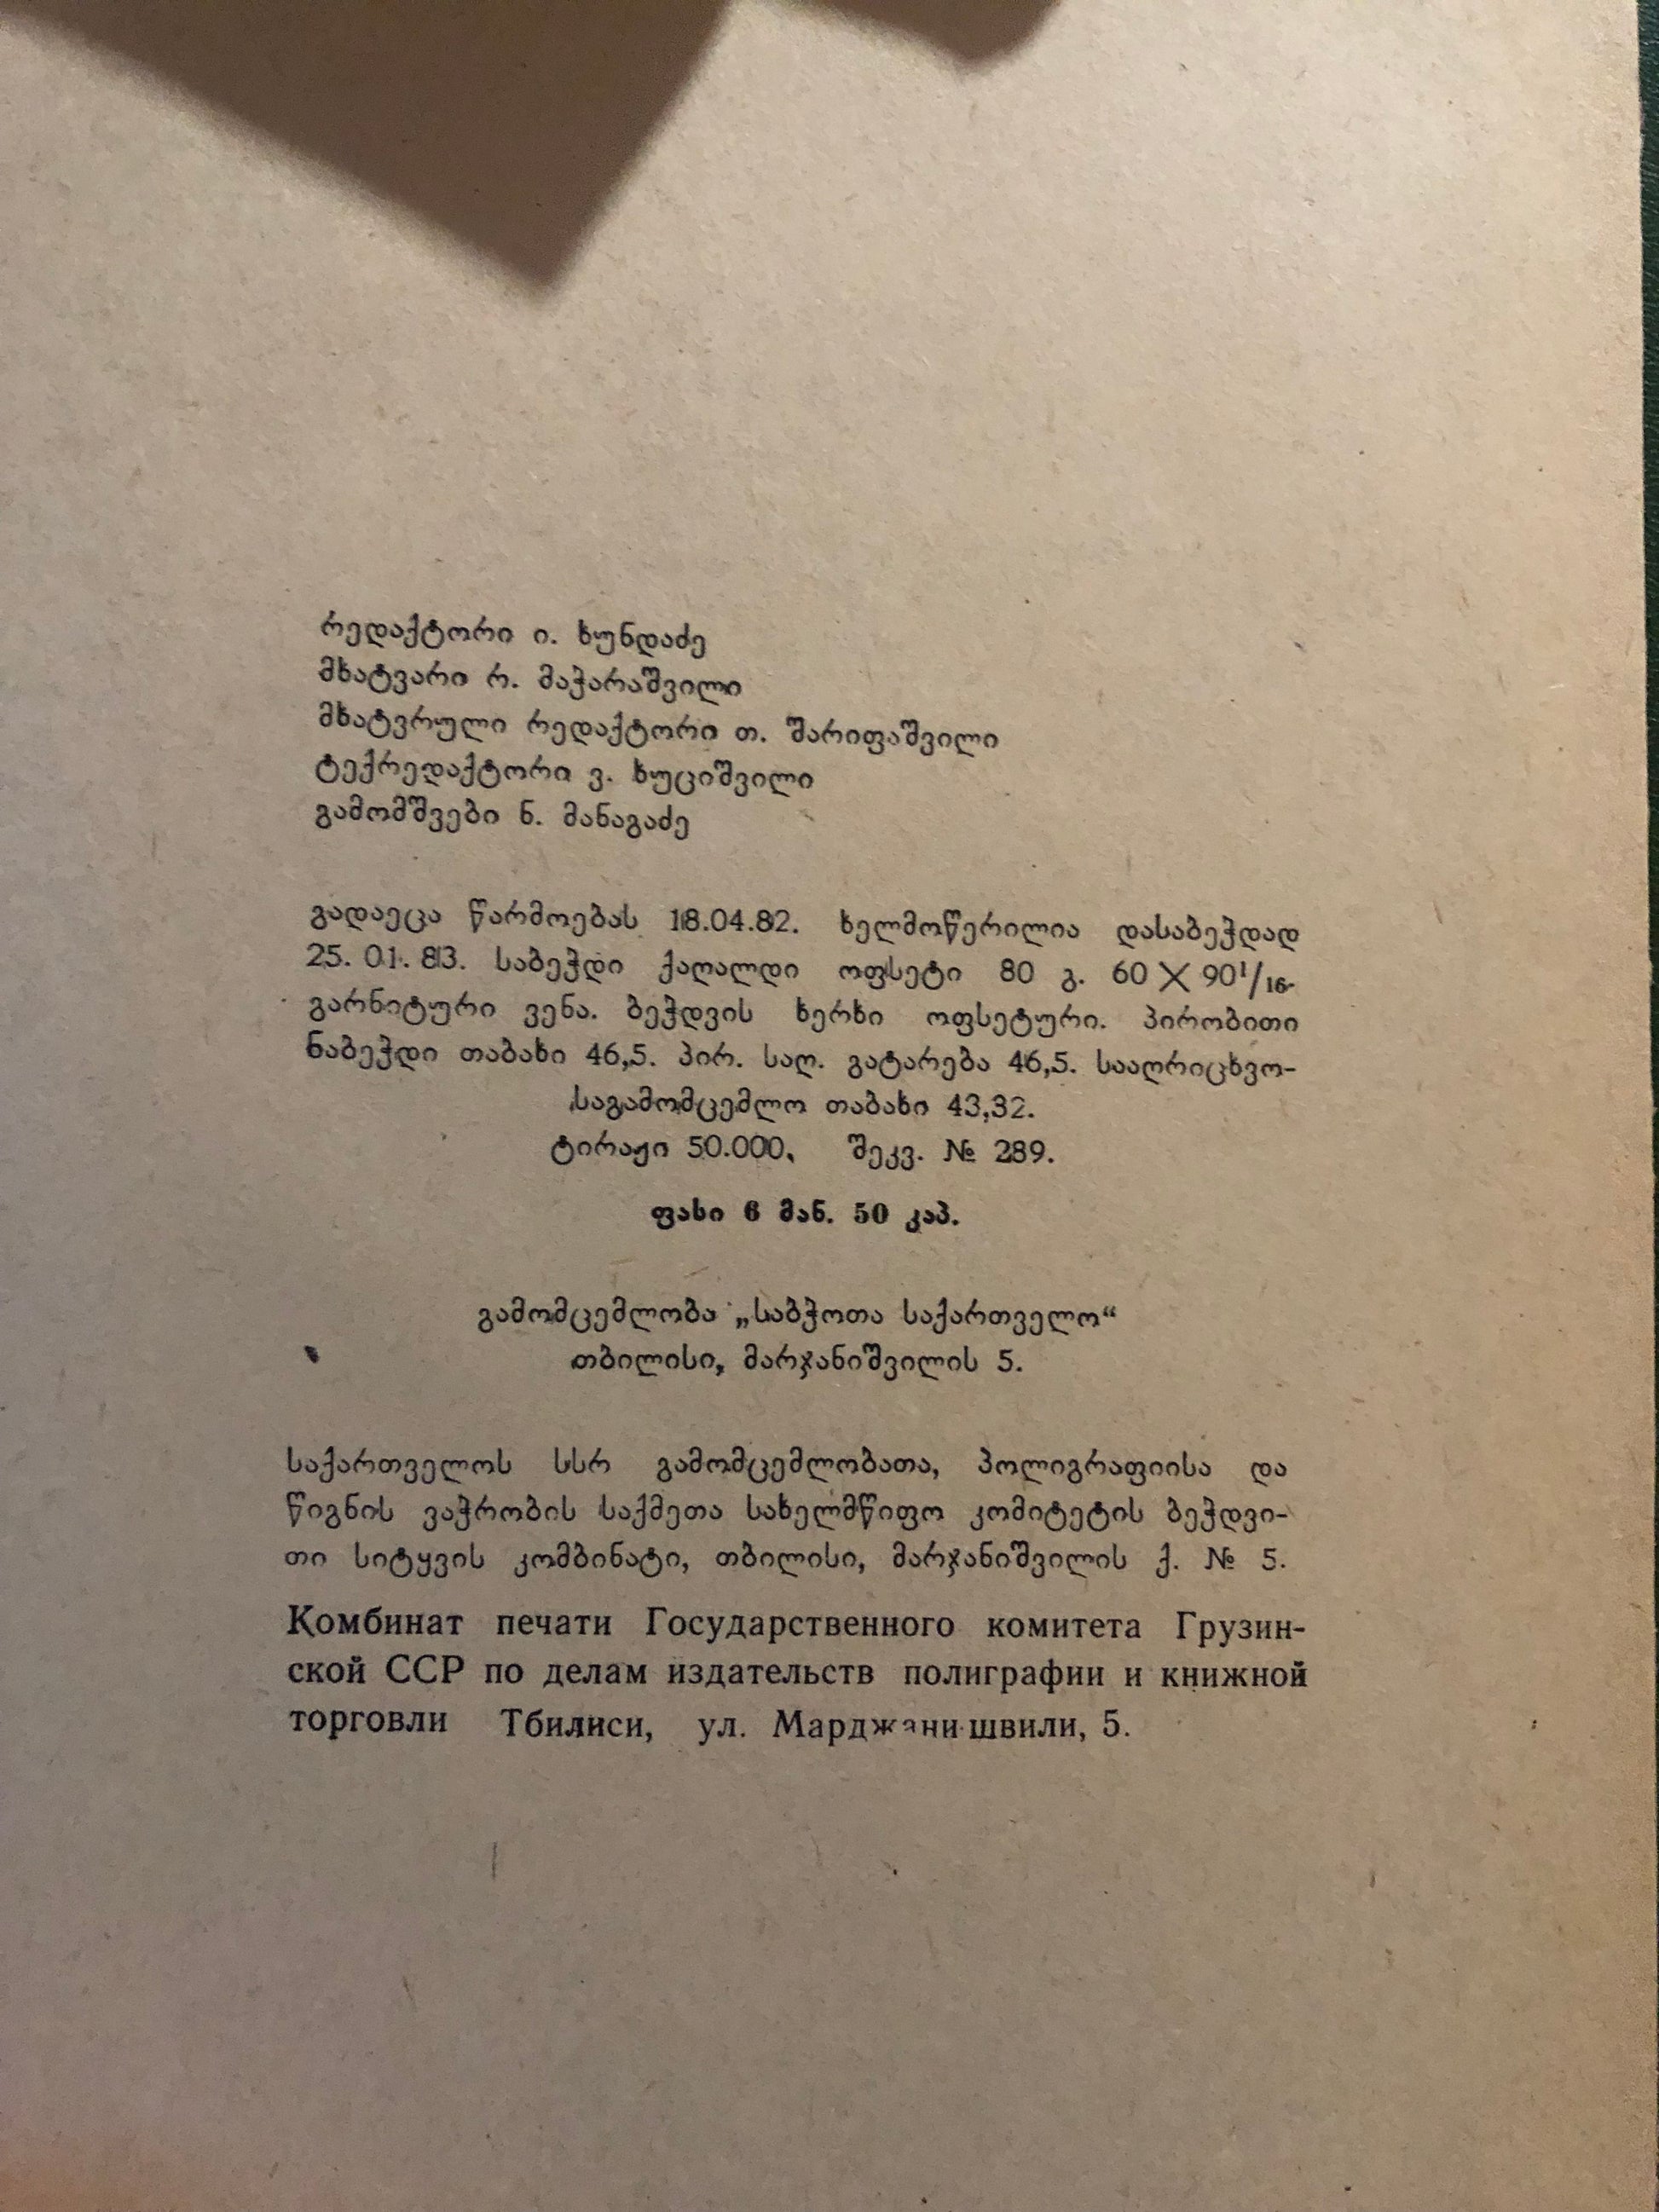 რედაქტორი ი. ხუნდაძე
მხატვარი რ. მაჭარაშვილი
მხატვრული რედაქტორი თ. შარიფაშვილი
ტექრედაქტორი ვ. ხუციშვილი
გამომშვები ნ. მანაგაძე
გადაეცა წარმოებას 18.04.82. ხელმოწერილია დასაბეჭდად
25. 01. 83. საბეჭდი ქაღალდი ოფსეტი 80 გ. 60 X 90¹/₁₆.
გარნიტური ვენა. ბეჭდვის ხერხი ოფსეტური. პირობითი
ნაბეჭდი თაბახი 46,5. პირ. საღ. გატარება 46,5. სააღრიცხვო-
საგამომცემლო თაბახი 43,32.
ტირაჟი 50.000. შეკვ. № 289.
ფასი 6 მან. 50 კაპ.
გამომცემლობა „საბჭოთა საქართველო“
თბილისი, მარჯანიშვილის 5.
საქართველოს სსრ გამომცემლობათა, პოლიგრაფიისა და
წიგნის ვაჭრობის საქმეთა სახელმწიფო კომიტეტის ბეჭდვი-
თი სიტყვის კომბინატი, თბილისი, მარჯანიშვილის ქ. № 5.
Комбинат печати Государственного комитета Грузин-
ской ССР по делам издательств полиграфии и книжной
торговли Тбилиси, ул. Марджанишвили, 5.